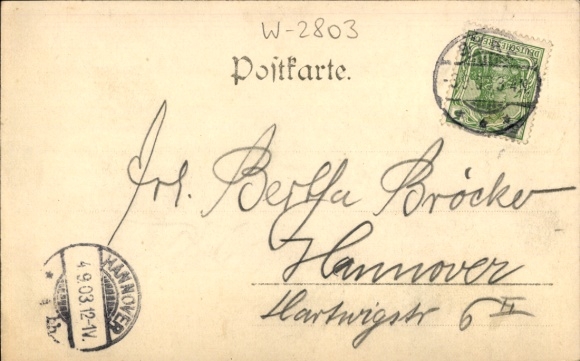 W-2803
DEUTSCHES REICH
Postkarte.
Frl. Bertha Bröcker
Hannover
Hartwigstr 6 II
HANNOVER
4.9.03.12-1V.